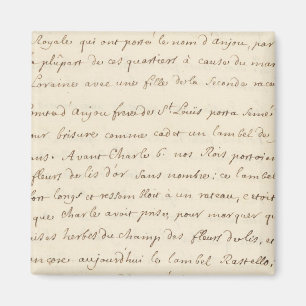 Royales qui ont porté le nom d'Anjou, par
la plûpart de ces quartiers à cause du mar
Loraine avec une fille de la Seconde race
omte d'Anjou frere de St Louis porta Semé
our brisure comme cadet un lambel de
ans. Avant Charle 6 nos Rois portoien
fleurs de lis d'or sans nombre; ce lambel
fort long et ressembloit à un rateau, c'étoit
que Charle avoit pris, pour marquer q
ises herbes du champ des fleurs de lis, et
encore aujourdhui le lambel Rastello,